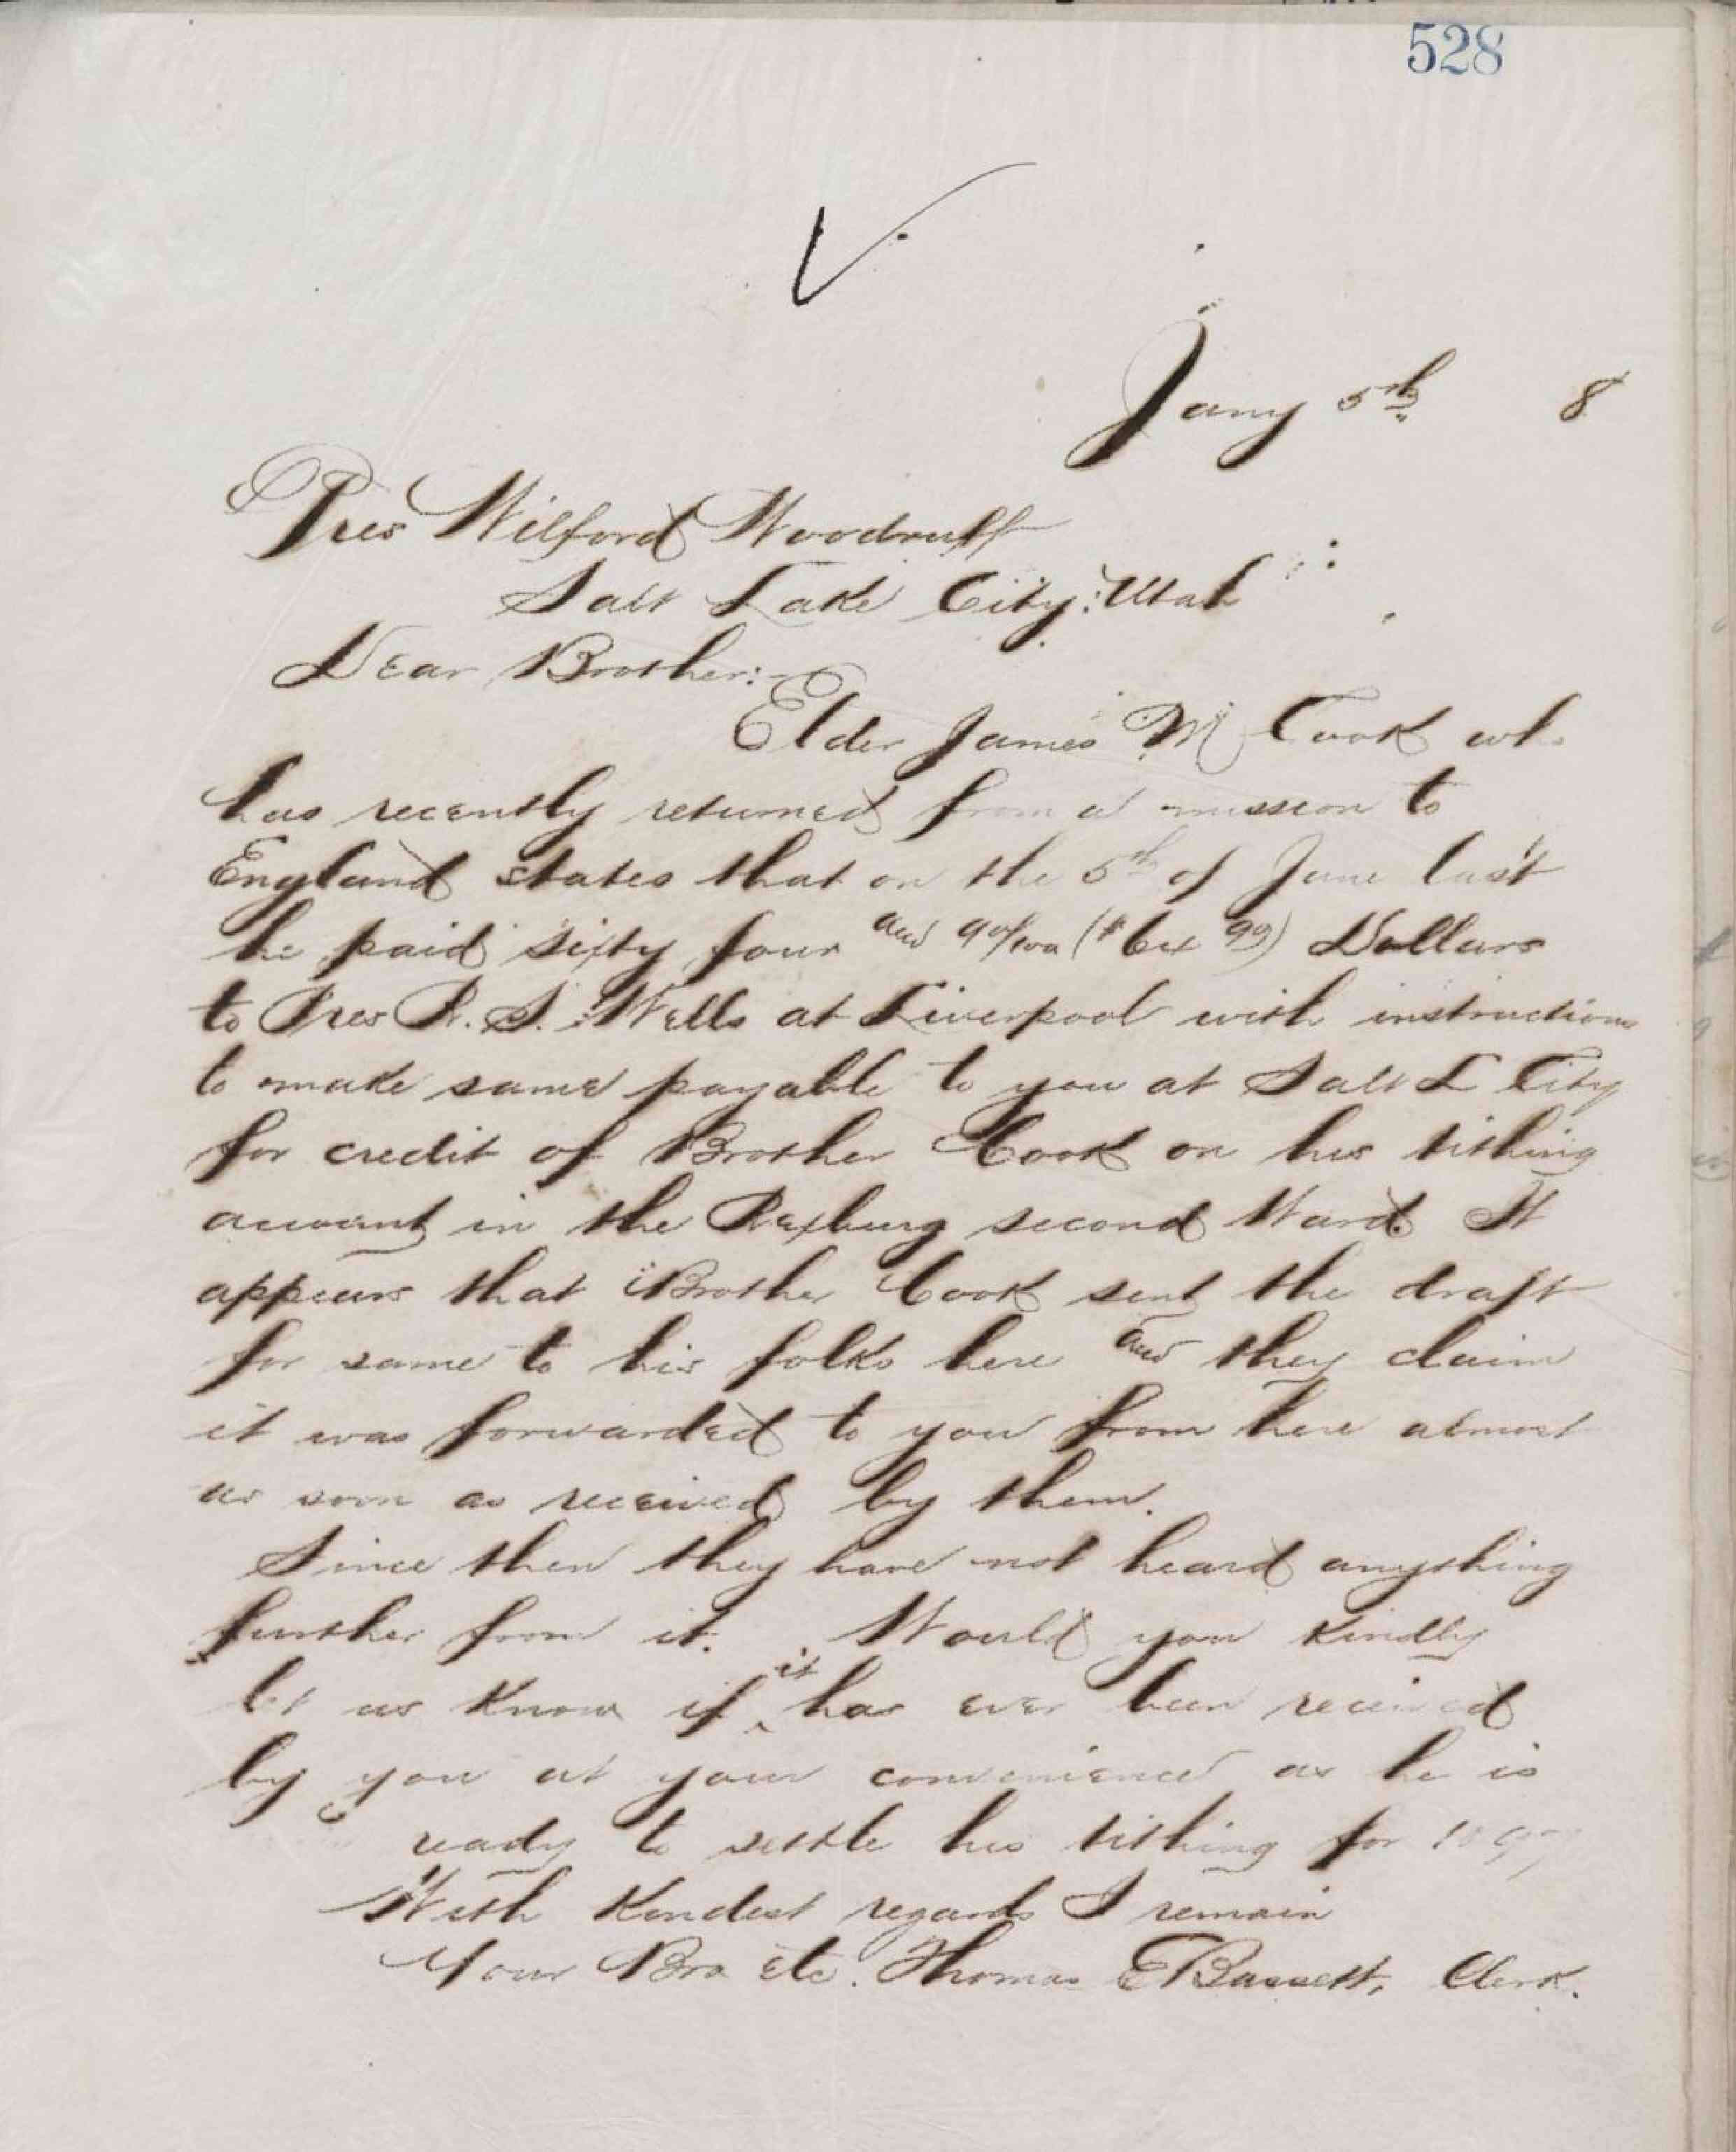 528
Jany 5th 8
Pres Wilford Woodruff
Salt Lake City: Utah
Dear Brother:-
Elder James M Cook who
has recently returned from a mission to
England states that on the 5th of June last
he paid sixty four and 90/100 ($64 99) Dollars
to Pres R. S. Wells at Liverpool with instructions
to make same payable to you at Salt L City
for credit of Brother Cook on his tithing
account in the Rexburg second Ward. It
appears that Brother Cook sent the draft
for same to his folks here and they claim
it was forwarded to you from here almost
as soon as received by them.
Since then they have not heard anything
further from it. Would you kindly
let us know if it has ever been received
by you at your convenience as he is
ready to settle his tithing for 1897
With Kindest regards I remain
Your Bro etc. Thomas E Bassett, Clerk.